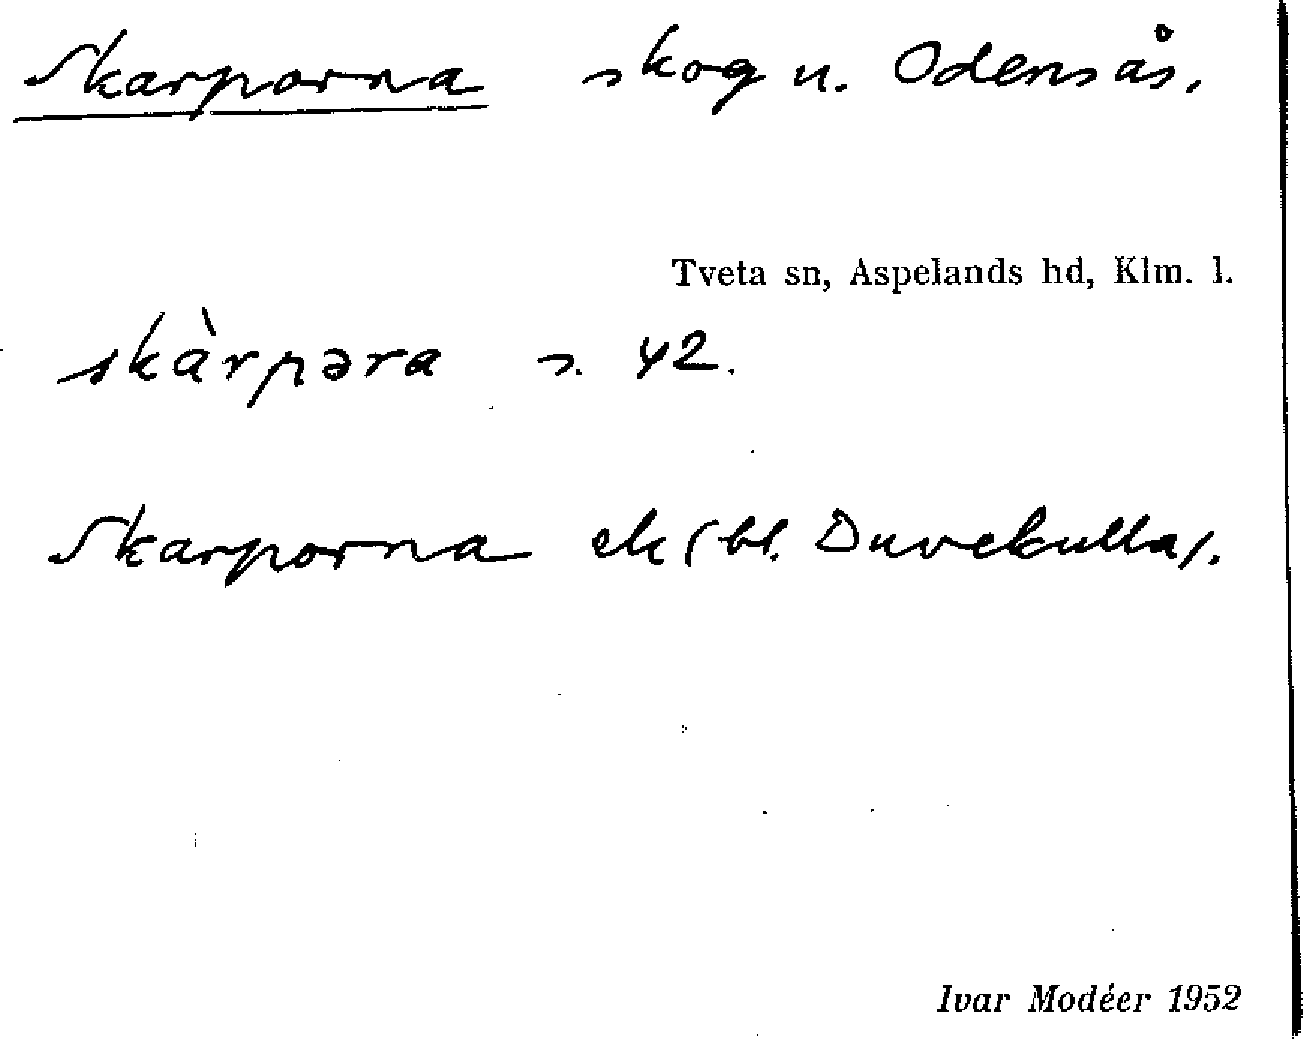 Skarporna skog u. Odensås.
Tveta sn, Aspelands hd, Klm. l.
skàrpəra s. 42.
Skarporna ek (bl. Duvekulla).
Ivar Modéer 1952